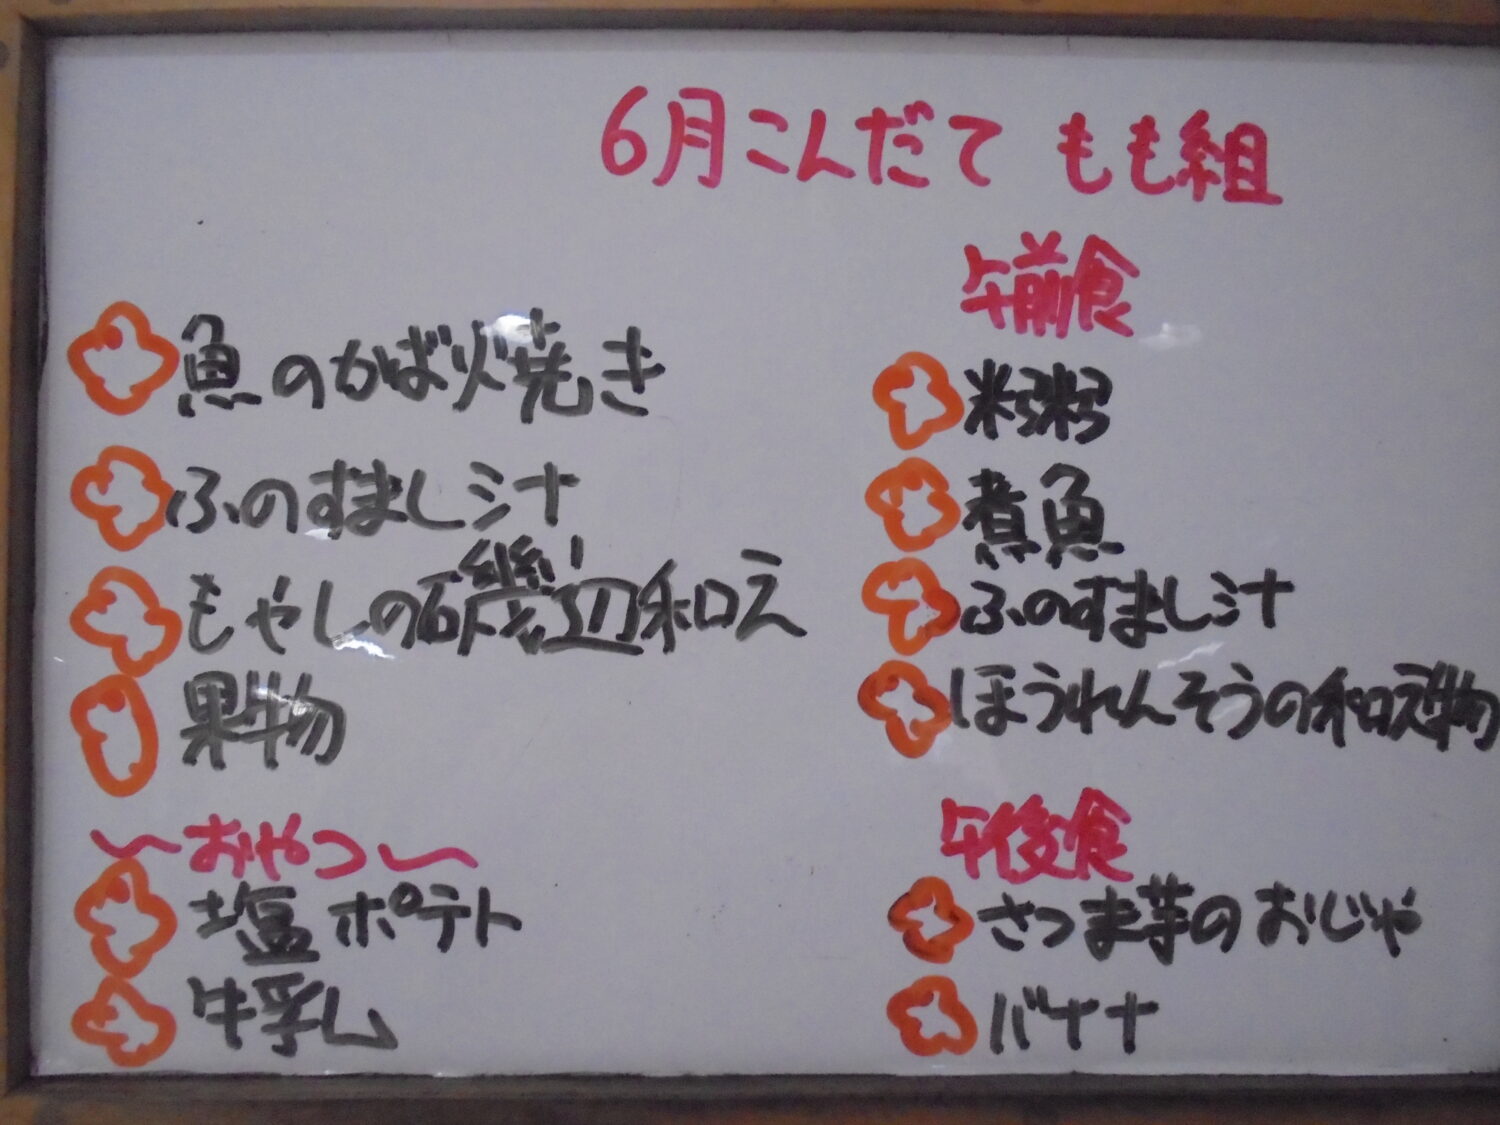 6月こんだて もも組
魚のかば焼き
ふのすまし汁
もやしの磯辺和え
果物
～おやつ～
塩ポテト
牛乳
午前食
米粥
煮魚
ふのすまし汁
ほうれんそうの和え物
午後食
さつま芋のおじや
バナナ